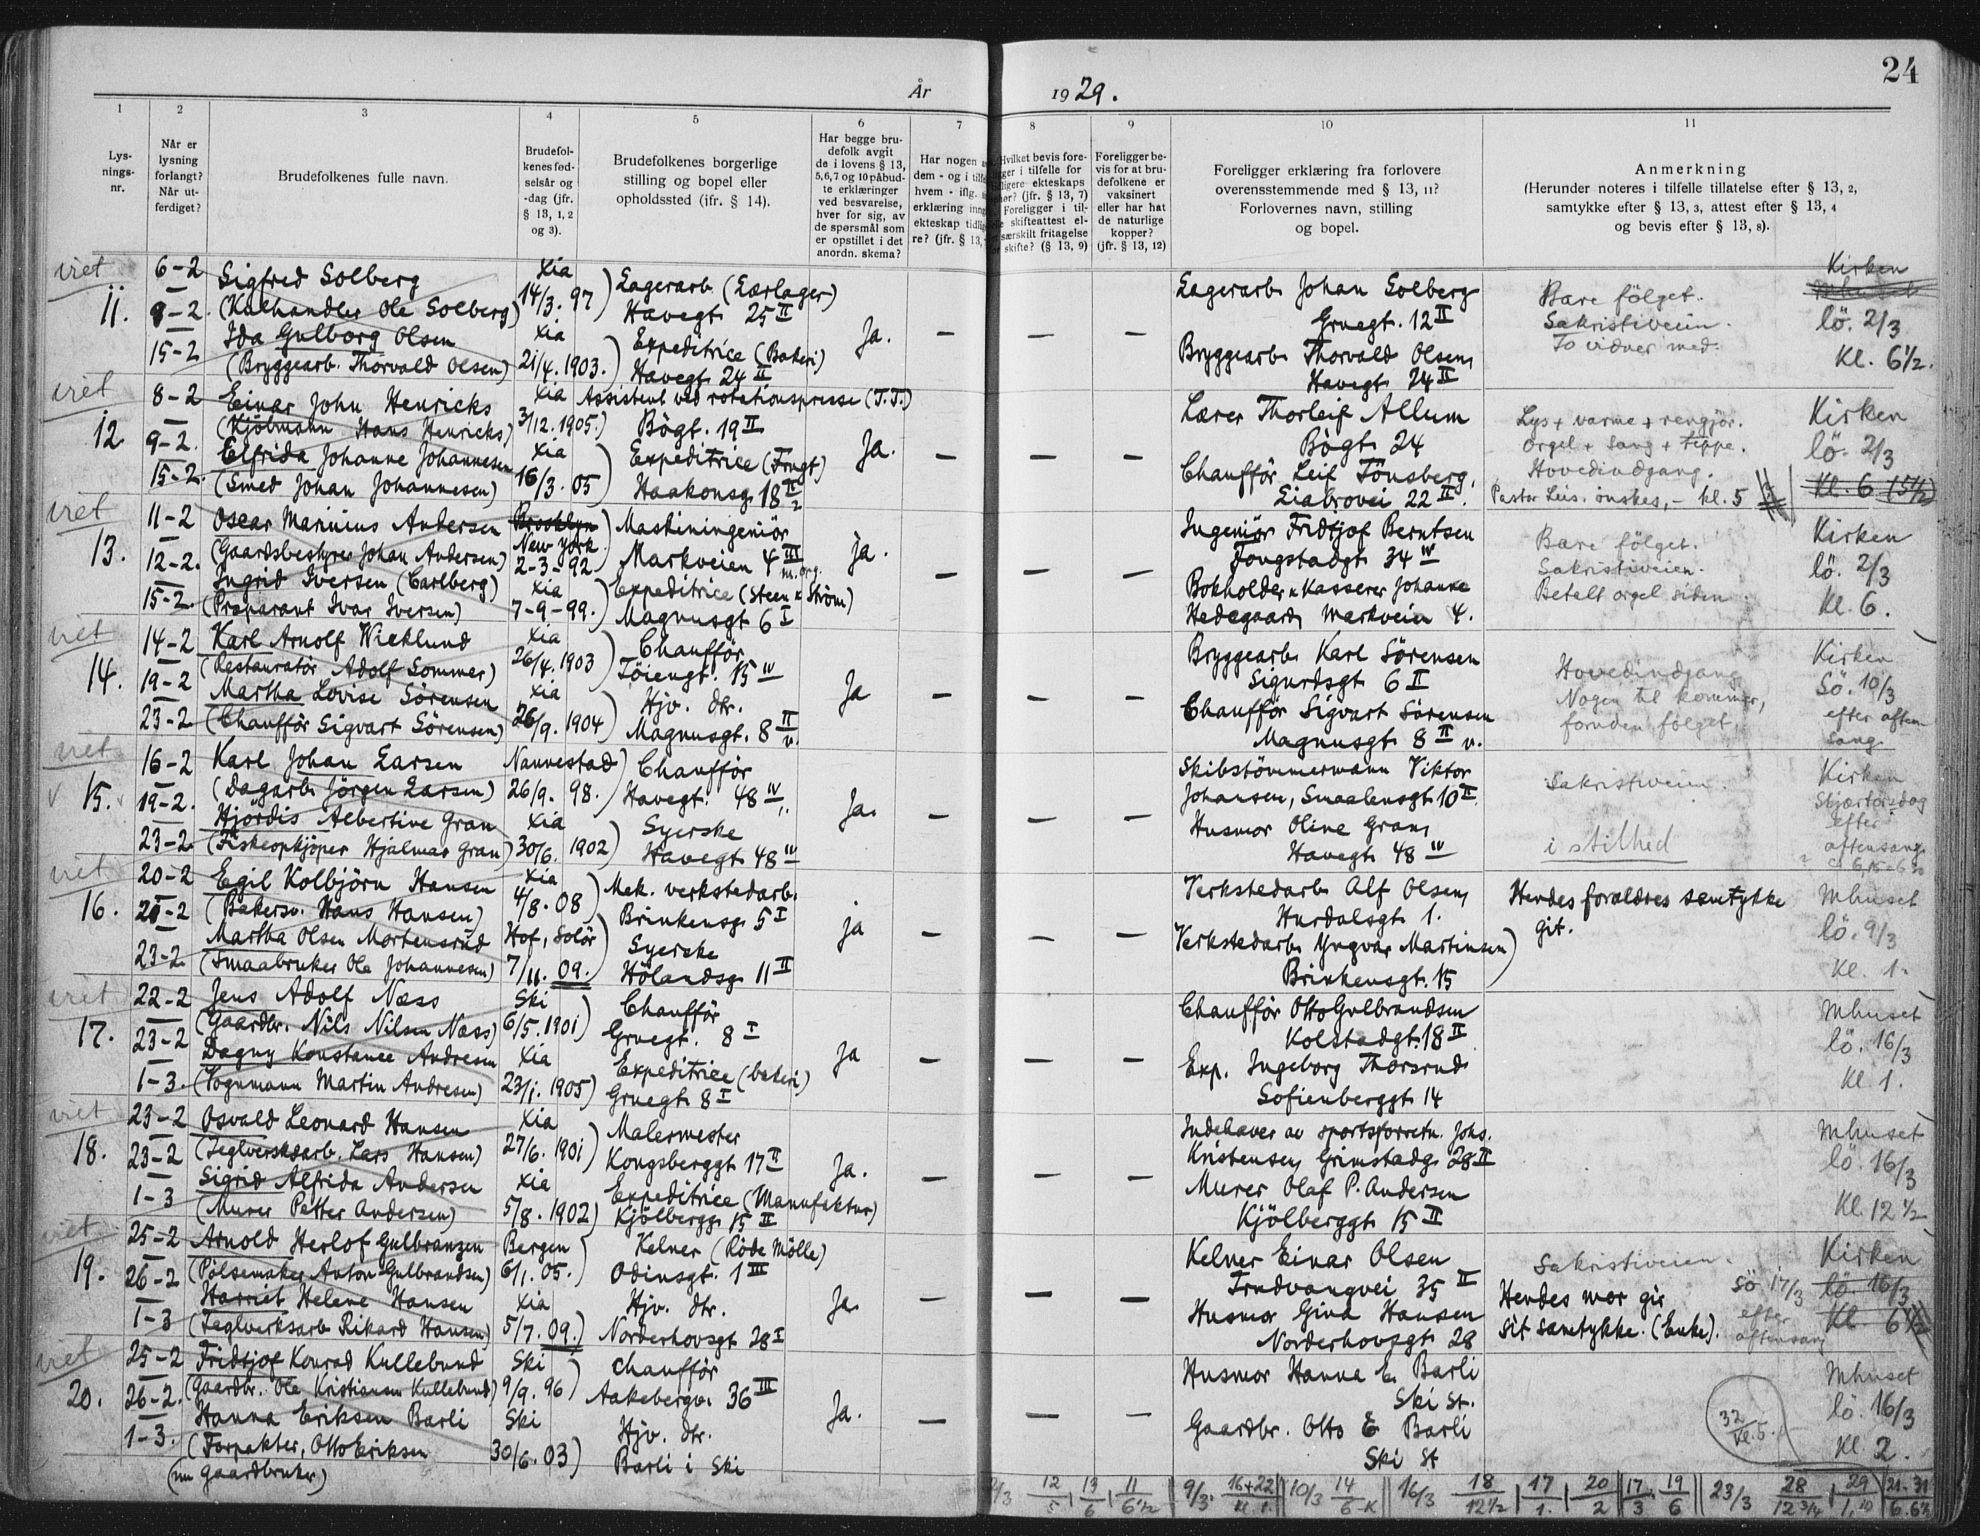 24
År 1929.
1 2 3 4 5 6 7 8 9 10 11
Lysningsnr.
Når er lysning forlangt? Når utferdiget?
Brudefolkenes fulle navn.
Brudefolkenes fødselsår og -dag (jfr. § 13, 1, 2 og 3).
Brudefolkenes borgerlige stilling og bopel eller opholdssted (ifr. § 14).
Har begge brudefolk avgit de i lovens § 13, 5,6,7 og 10 påbudte erklæringer ved besvarelse, hver for sig, av de spørsmål som er opstillet i det anordn. skema?
Har nogen
dem - og i
hvem - iflg.
erklæring
ekteskap
re? (jfr. § 13,
Hvilket bevis fore-
ger i tilfelle for
ligere ekteskaps
(jfr. § 13, 7)
Foreligger i til-
skifteattest el-
særskilt fritagelse
skifte? (§ 13, 9)
Foreligger bevis for at brudefolkene er vaksinert eller har hat de naturlige kopper? (jfr. § 13, 12)
Foreligger erklæring fra forlovere overensstemmende med § 13, 11? Forlovernes navn, stilling og bopel.
Anmerkning
(Herunder noteres i tilfelle tillatelse efter § 13, 2, samtykke efter § 13, 3, attest efter § 13, 4 og bevis efter § 13, 8).
viet 11. 6-2 Sigfred Solberg Xia Lagerarb. (Lærlager) Lagerarb. Johan Solberg Kirken
8-2. (Kulhandler Ole Solberg) 14/3. 97) Havegt. 25 II Gruegt. 12 II Bare fölget. Mhuset
Ida Gulborg Olsen Xia Expeditrice (Bakeri) Ja. — — — Bryggearb. Thorvald Olsen, Sakristiveien. lö. 2/3
15-2 (Bryggearb. Thorvald Olsen) 21/4. 1903.) Havegt. 24 II Havegt. 24 II To vidner med. Kl. 6 1/2.
viet 12. 8-2 Einar John Henricks Xia Assistent ved rotationspresse (T.T.) Lærer Thorleif Allum Lys + varme + rengjör. Kirken
(Kjölmann Hans Henricks) 3/12. 1905.) Bögt. 19 II Bögt. 24 Orgel + sang + teppe. lö. 2/3
9-2. Elfrida Johanne Johannesen Xia Expeditrice (Frugt) Ja. — — — Chaufför Leif Tönsberg, Hovedindgang.
15-2. (Smed Johan Johannesen) 16/3. 05) Haakonsg. 18 II Liabrovei 22 II. Pastor Leis. önskes, - kl. 5 Kl. 6 (5 1/2)
viet 13. 11-2 Oscar Marinius Andersen Brooklyn Maskiningeniör Ingeniör Fridtjof Berntsen Kirken
(Gaardsbestyrer Johan Andersen) New York. 2-3-92 Markveien 4 III m. org. Ja. — — — Tongstadgt. 34 IV Bare fölget. lö. 2/3
12-2. Ingrid Iversen (Carlberg) Xia Expeditrice (Steen & Ström) Bokholder & Kasserer Johanne Sakristiveien.
15-2. (Præparant Ivar Iversen) 7-9-99.) Magnusgt 6 I Hedegaard, Markveien 4. Betalt orgel siden Kl. 6.
viet 14. 14-2 Karl Arnolf Wicklund Xia Chaufför Bryggearb. Karl Sörensen Kirken
(Restauratör Adolf Sommer) 26/4. 1903) Töiengt. 15 IV Sigurdsgt 6 II Hovedindgang Sö. 10/3
19-2 Martha Lovise Sörensen Xia Hjv. dtr. Ja — — — Chaufför Sigvart Sörensen Nogen til kommer, efter aften
23-2. (Chaufför Sigvart Sörensen) 26/9. 1904) Magnusgt. 8 II v. Magnusgt. 8 II v. foruden fölget, sang
viet 15. 16-2 Karl Johan Larsen Nannestad Chaufför Skibstömmermann Viktor Kirken
(Dagarb. Jörgen Larsen) 26/9. 98.) Havegt. 48 IV Johansen, Smaalensgt 10 II Sakristiveien. Skjærtorsdag
19-2. Hjördis Albertine Gran Xia Syerske Ja. — — — Husmor Oline Gran, efter
23-2. (Fiskeopkjöper Hjalmar Gran) 30/6. 1902) Havegt. 48 IV Havegt. 48 IV i stilhed aftensang.
viet 16. 20-2 Egil Kolbjörn Hansen Xia Mek. verkstedarb. Verkstedarb. Alf Olsen, Hendes forældres samtykke Mhuset
(Bakersv. Hans Hansen) 4/8. 08) Brinkensg. 5 I Hurdalsgt. 1. git. lö. 9/3
21-2 Martha Olsen Mortensrud Hof, Solör Syerske Ja — — — Verkstedarb. Yngvar Martinsen)
23-2. (Smaabruker Ole Johannesen) 7/11. 09.) Hölandsg. 11 II Brinkensgt. 15 Kl. 1.
viet 17. 22-2 Jens Adolf Næss Ski Chaufför Chaufför Otto Gulbrandsen Mhuset
(Gaardbr. Nils Nilsen Næss) 6/5. 1901) Gruegt. 8 I Kolstadgt. 18 II lö. 16/3
23-2 Dagny Konstance Andresen Xia Expeditrice (bakeri) Ja — — — Exp. Ingeborg Thorsrud Kl. 1.
1-3. (Vognmann Martin Andresen) 23/1. 1905) Gruegt. 8 I Sofienberggt 14
viet 18. 23-2 Osvald Leonard Hansen Xia Malermester Indehaver av sportsforretn. Johs. Mhuset
(Teglverksarb. Lars Hansen) 27/6. 1901) Kongsberggt 17 II Kristensen, Grimstadg. 28 II lö. 16/3
23-2 Sigrid Alfrida Andersen Xia Expeditrice (Manufaktur) Ja. — — — Murer Olaf P. Andersen
1-3 (Murer Petter Andersen) 5/8. 1902) Kjölbergg. 15 II Kjölberggt. 15 II Kl. 12 1/2
viet 19. 25-2 Arnold Herlof Gulbranzen Bergen Kelner (Röde Mölle) Kelner Einar Olsen Sakristiveien. Kirken
(Pölsemaker Anton Gulbrandsen) 6/1. 05.) Odinsgt. 1 III Trudvangvei 35 II Hendes mor gir Sö 17/3 lö. 16/3
26-2 Harriet Helene Hansen Xia Hjv. dtr. Ja. — — — Husmor Gina Hansen sit samtykke. (Enke). efter Kl. 6 1/2
1-3 (Teglverksarb. Rikard Hansen) 5/7. 09.) Norderhovsgt 28 I Norderhovsgt. 28 aftensang
viet 20. 25-2 Fridtjof Konrad Kullebund Ski Chaufför Husmor Hanna E. Barli Mhuset
(Gaardbr. Ole Kristiansen Kullebund) 9/9. 96) Aakebergv. 36 III Ski St. lö. 16/3
26-2. Hanna Eriksen Barli Ski Hjv. dtr. Ja. — — — Gaardbr. Otto E Barli 32 Kl. 5.
1-3. (Forpakter, Otto Eriksen 30/6. 03) Barli i Ski Ski St Kl. 2.
(nu gaardbruker)
2/3 12/5 13/6 11/6 1/2 9/3. 16+22/Kl. 1. 10/3 14/6-K 16/3 18/12 1/2 17/1. 20/2 17/3 19/6 23/3 28/12 3/4 29/1,10 21-31/6.